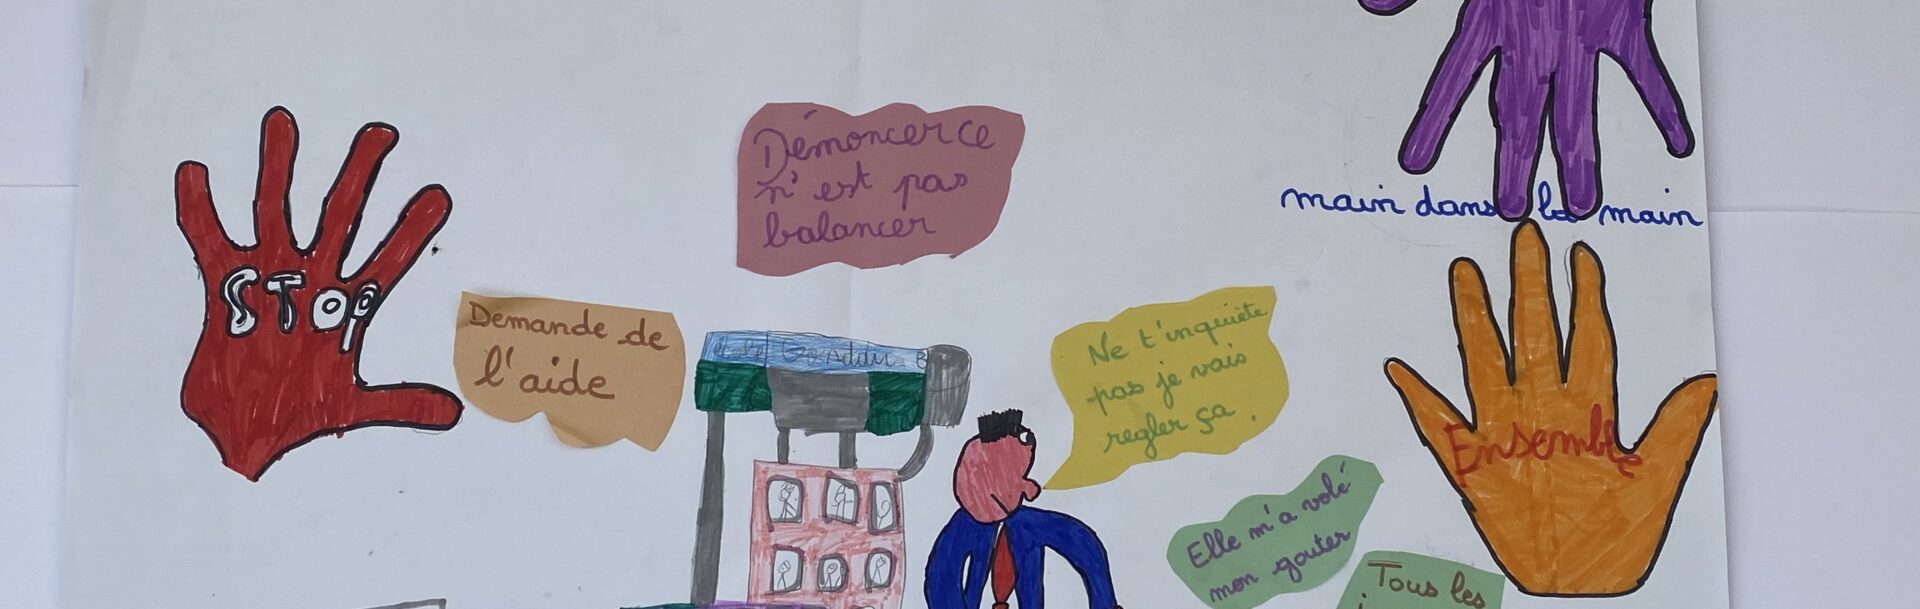 STOP
Démoncer ce
n'est pas
balancer
main dans la main
Demande de
l'aide
Ne t'inquiète
pas je vais
regler ça.
Ensemble
Elle m'a volé
mon gouter
Tous les